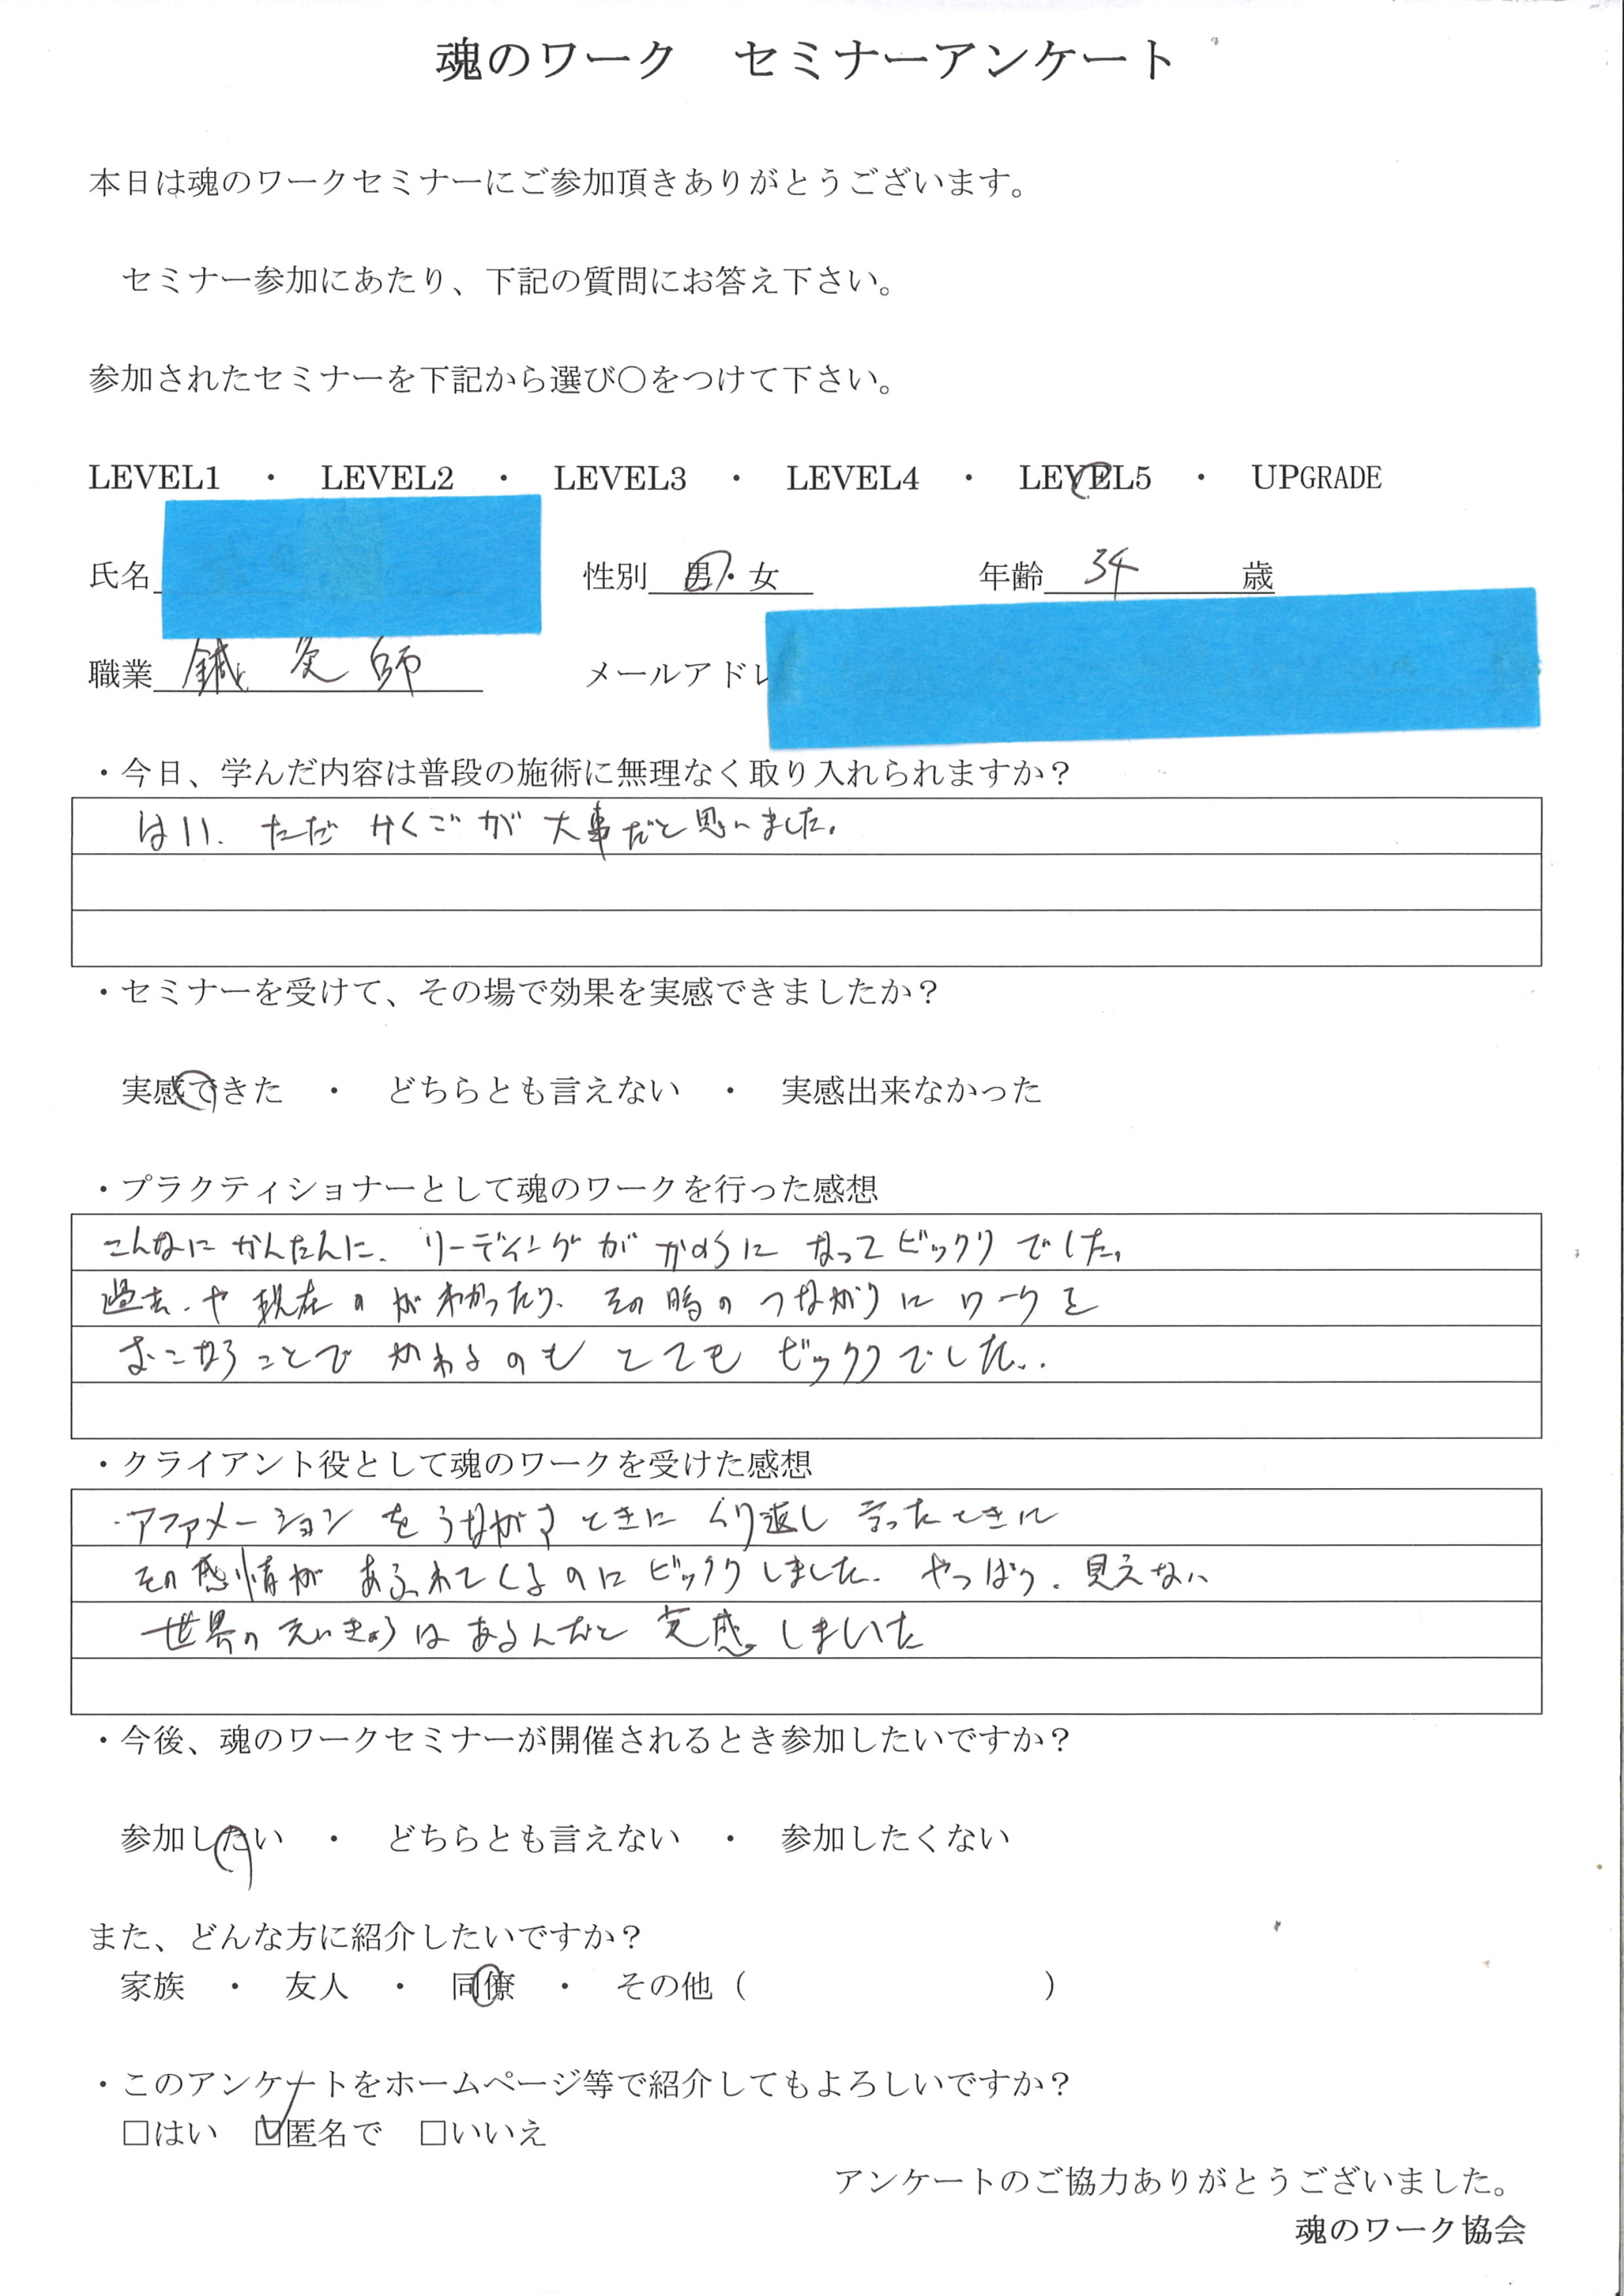 魂のワーク　セミナーアンケート
本日は魂のワークセミナーにご参加頂きありがとうございます。
セミナー参加にあたり、下記の質問にお答え下さい。
参加されたセミナーを下記から選び〇をつけて下さい。
LEVEL1　・　LEVEL2　・　LEVEL3　・　LEVEL4　・　LEVEL5　・　UPGRADE
氏名　性別　男・女　年齢　34　歳
職業　鍼灸師　メールアドレ
・今日、学んだ内容は普段の施術に無理なく取り入れられますか？
はい、ただ かくごが 大事だと思いました。
・セミナーを受けて、その場で効果を実感できましたか？
実感できた　・　どちらとも言えない　・　実感出来なかった
・プラクティショナーとして魂のワークを行った感想
こんなに かんたんに、リーディングが かのうに なってビックリでした。
過去、や 現在のが わかったり、その時の つながりに ワークを
おこなうことで かわるのも とても ビックリでした..
・クライアント役として魂のワークを受けた感想
・アファメーション を うながす ときに くり返し 言ったときに
その感情が あふれてくるのに ビックリしました。やっぱり、見えない
世界の えいきょうは あるんだと 実感 しまいた
・今後、魂のワークセミナーが開催されるとき参加したいですか？
参加したい　・　どちらとも言えない　・　参加したくない
また、どんな方に紹介したいですか？
家族　・　友人　・　同僚　・　その他（　　　　　　　　　）
・このアンケートをホームページ等で紹介してもよろしいですか？
□はい　☑匿名で　□いいえ
アンケートのご協力ありがとうございました。
魂のワーク協会